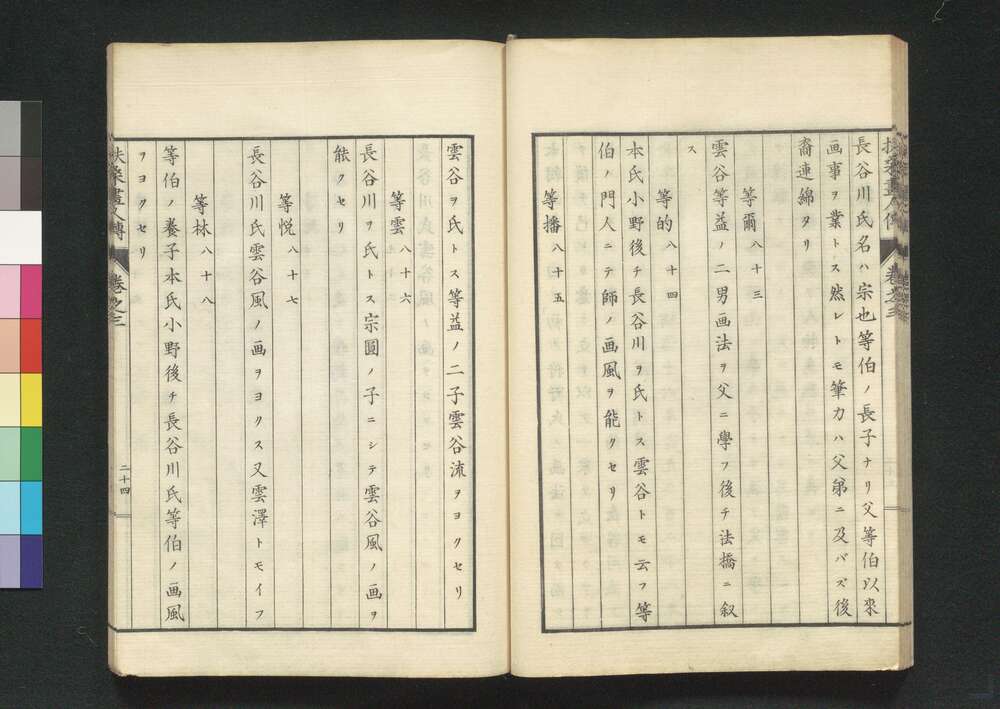 長谷川氏名ハ宗也等伯ノ長子ナリ父等伯以來
画事ヲ業トス然レトモ筆力ハ父弟ニ及バズ後
裔連綿タリ
等爾八十三
雲谷等益ノ二男画法ヲ父ニ學フ後チ法橋ニ叙
ス
等的八十四
本氏小野後チ長谷川ヲ氏トス雲谷トモ云フ等
伯ノ門人ニテ師ノ画風ヲ能クセリ
等播八十五
雲谷ヲ氏トス等益ノ二子雲谷流ヲヨクセリ
等雲八十六
長谷川ヲ氏トス宗圓ノ子ニシテ雲谷風ノ画ヲ
能クセリ
等悦八十七
長谷川氏雲谷風ノ画ヲヨクス又雲澤トモイフ
等林八十八
等伯ノ養子本氏小野後チ長谷川氏等伯ノ画風
ヲヨクセリ
扶桑畫人傳 卷之三 二十四